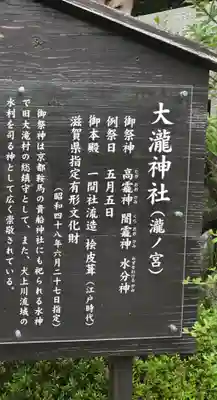 大瀧神社(瀧ノ宮)
御祭神 高龗神 闇龗神 水分神
例祭日 五月五日
御本殿 一間社流造 桧皮葺(江戸時代)
滋賀県指定有形文化財
(昭和四十八年六月二十七日指定)
御祭神は京都鞍馬の貴船神社にも祀られる水神
で旧大滝村の総鎮守として、また、犬上川流域の
水利を司る神として広く崇敬されている。